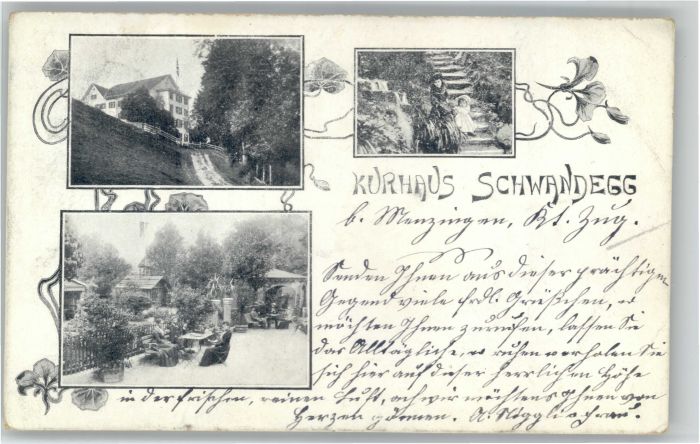 KURHAUS SCHWANDEGG
b. Menzingen, Kt. Zug.
Senden Ihnen aus dieser prächtigen
Gegend viele frdl. Grüßchen, o
möchten Ihnen zurufen, lassen Sie
das Alltägliche, o ruhen erholen Sie
sich hier auf dieser herrlichen Höhe
in der frischen, reinen Luft, ach wir möchtens Ihnen von
Herzen gönnen. A.